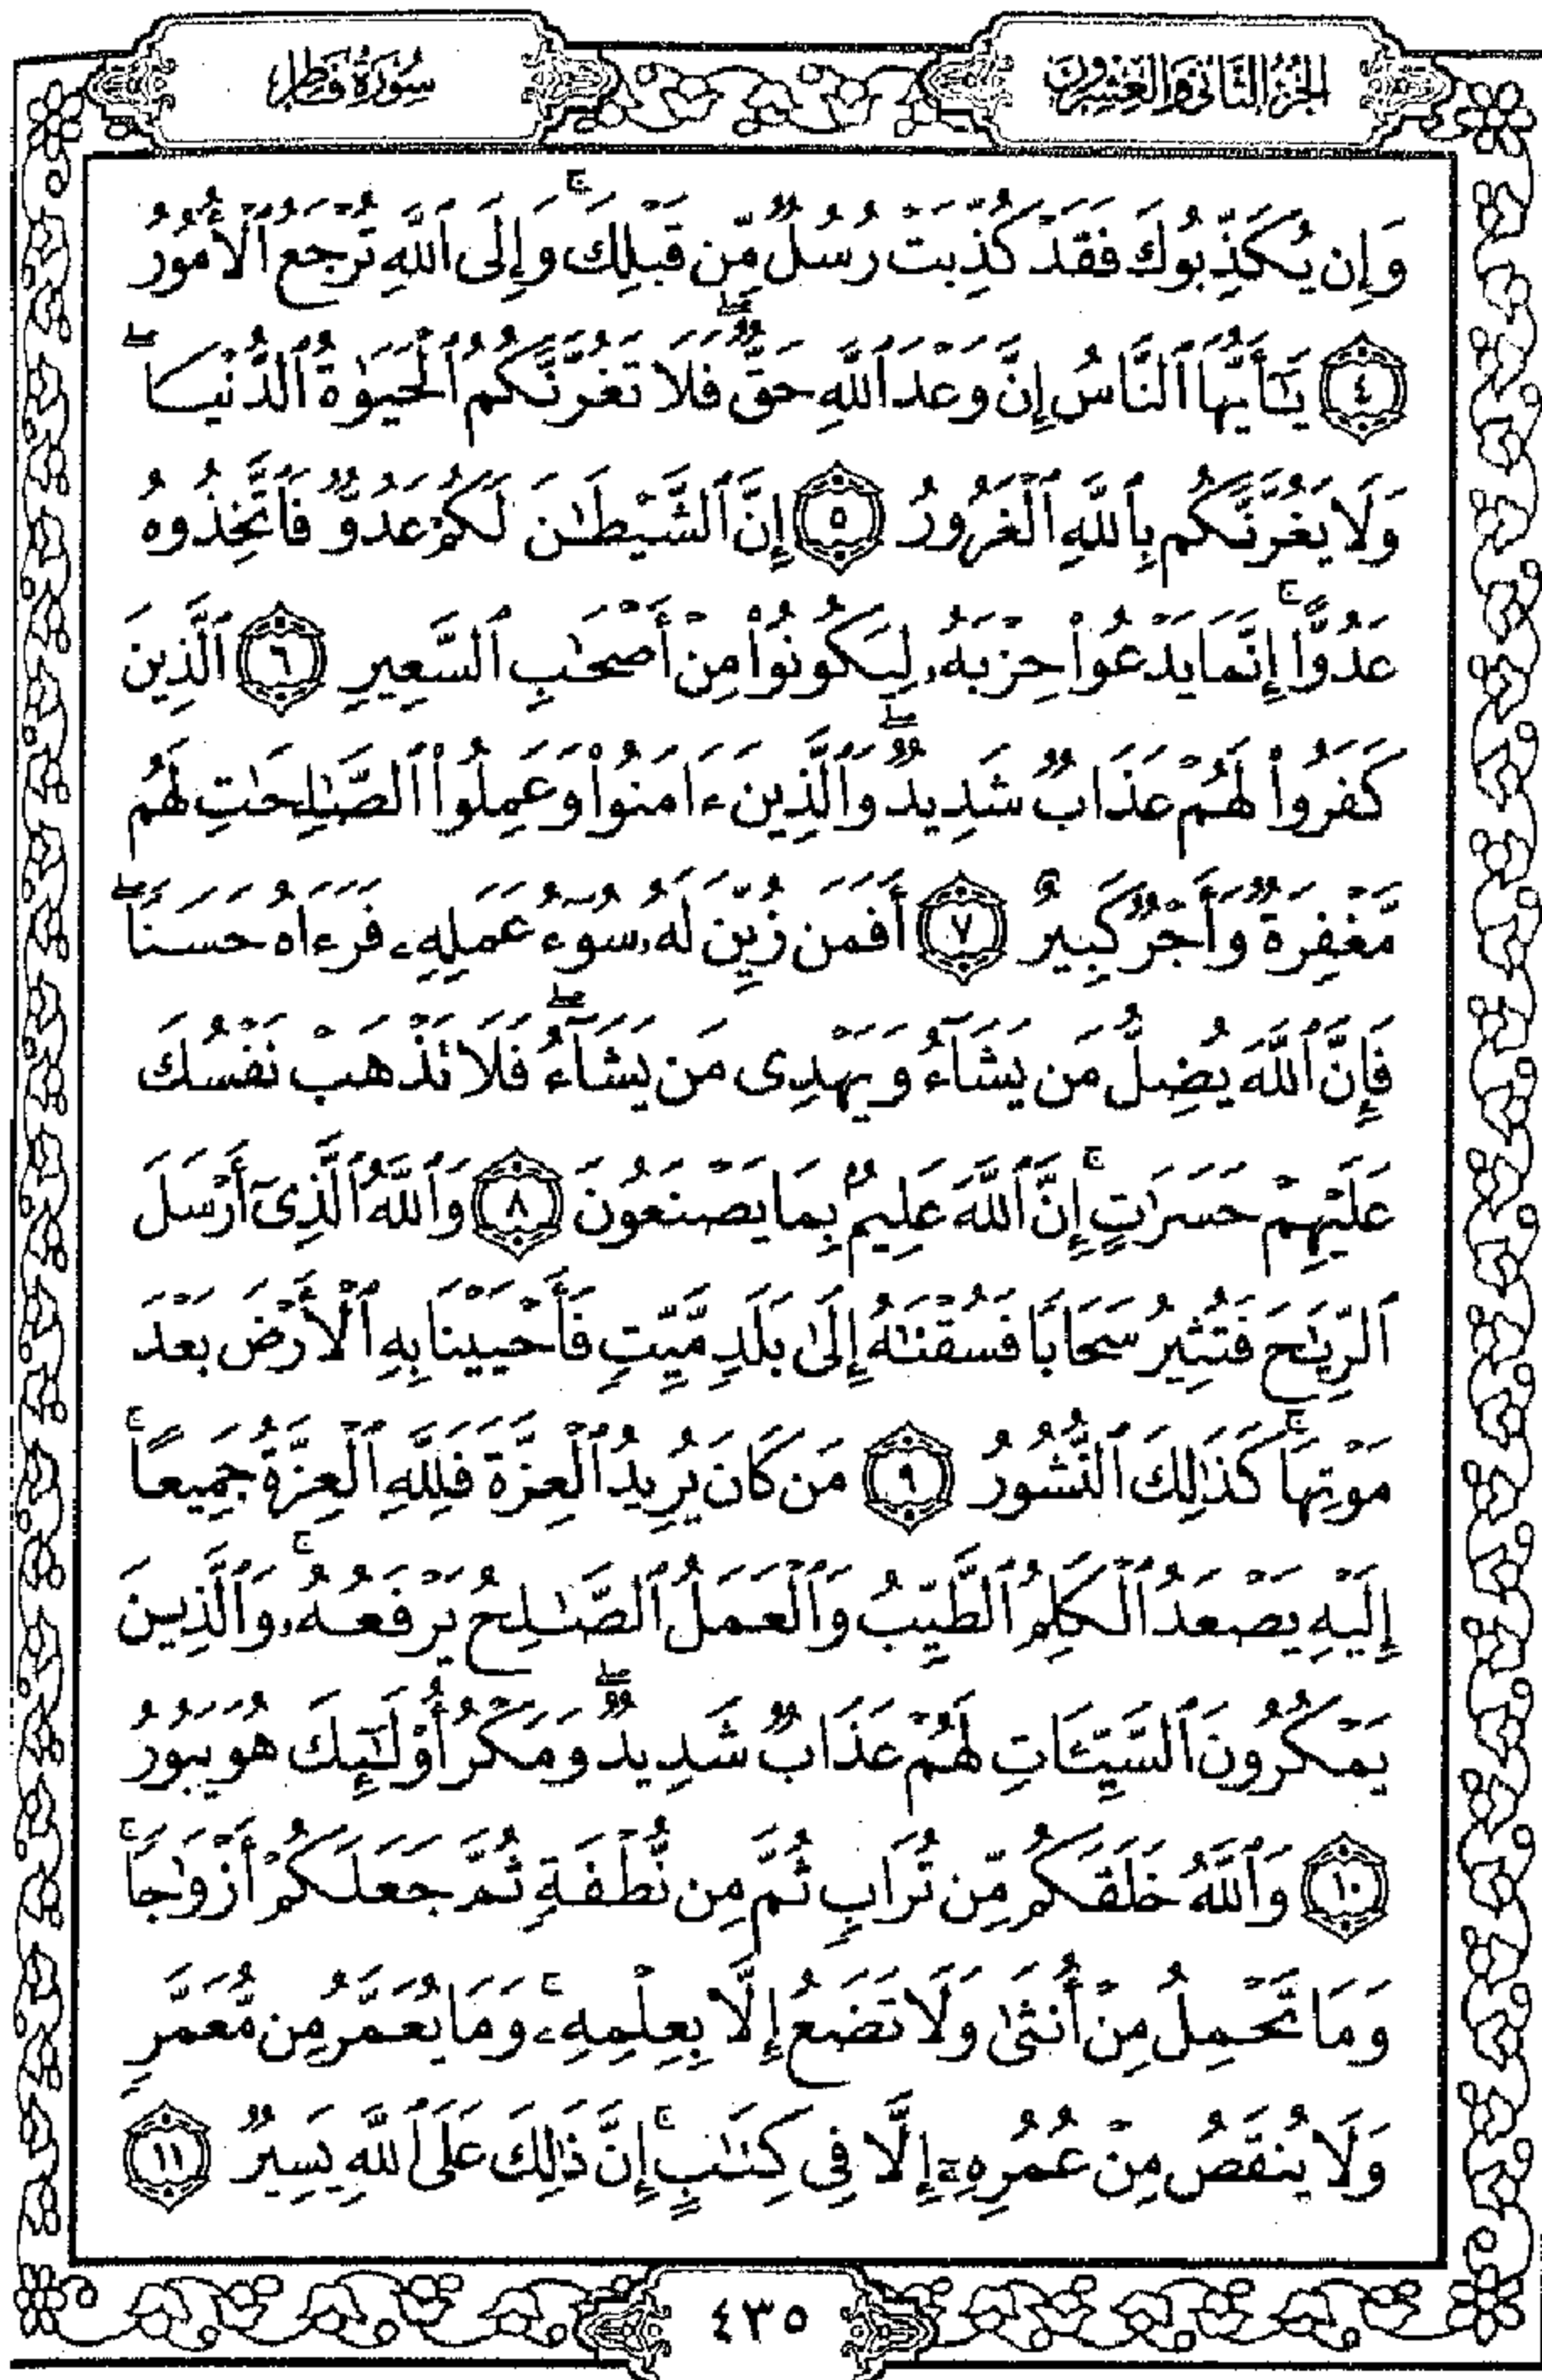 الجزء الثاني والعشرون
سورة فاطر
وَإِن يُكَذِّبُوكَ فَقَدْ كُذِّبَتْ رُسُلٌ مِّن قَبْلِكَ ۚ وَإِلَى ٱللَّهِ تُرْجَعُ ٱلْأُمُورُ
٤ يَـٰٓأَيُّهَا ٱلنَّاسُ إِنَّ وَعْدَ ٱللَّهِ حَقٌّ ۖ فَلَا تَغُرَّنَّكُمُ ٱلْحَيَوٰةُ ٱلدُّنْيَا ۖ
وَلَا يَغُرَّنَّكُم بِٱللَّهِ ٱلْغَرُورُ ٥ إِنَّ ٱلشَّيْطَـٰنَ لَكُمْ عَدُوٌّ فَٱتَّخِذُوهُ
عَدُوًّا ۚ إِنَّمَا يَدْعُوا۟ حِزْبَهُۥ لِيَكُونُوا۟ مِنْ أَصْحَـٰبِ ٱلسَّعِيرِ ٦ ٱلَّذِينَ
كَفَرُوا۟ لَهُمْ عَذَابٌ شَدِيدٌ ۖ وَٱلَّذِينَ ءَامَنُوا۟ وَعَمِلُوا۟ ٱلصَّـٰلِحَـٰتِ لَهُم
مَّغْفِرَةٌ وَأَجْرٌ كَبِيرٌ ٧ أَفَمَن زُيِّنَ لَهُۥ سُوٓءُ عَمَلِهِۦ فَرَءَاهُ حَسَنًا ۖ
فَإِنَّ ٱللَّهَ يُضِلُّ مَن يَشَآءُ وَيَهْدِى مَن يَشَآءُ ۖ فَلَا تَذْهَبْ نَفْسُكَ
عَلَيْهِمْ حَسَرَٰتٍ ۚ إِنَّ ٱللَّهَ عَلِيمٌۢ بِمَا يَصْنَعُونَ ٨ وَٱللَّهُ ٱلَّذِىٓ أَرْسَلَ
ٱلرِّيَـٰحَ فَتُثِيرُ سَحَابًا فَسُقْنَـٰهُ إِلَىٰ بَلَدٍ مَّيِّتٍ فَأَحْيَيْنَا بِهِ ٱلْأَرْضَ بَعْدَ
مَوْتِهَا ۚ كَذَٰلِكَ ٱلنُّشُورُ ٩ مَن كَانَ يُرِيدُ ٱلْعِزَّةَ فَلِلَّهِ ٱلْعِزَّةُ جَمِيعًا ۚ
إِلَيْهِ يَصْعَدُ ٱلْكَلِمُ ٱلطَّيِّبُ وَٱلْعَمَلُ ٱلصَّـٰلِحُ يَرْفَعُهُۥ ۚ وَٱلَّذِينَ
يَمْكُرُونَ ٱلسَّيِّـَٔاتِ لَهُمْ عَذَابٌ شَدِيدٌ ۖ وَمَكْرُ أُو۟لَـٰٓئِكَ هُوَ يَبُورُ
١٠ وَٱللَّهُ خَلَقَكُم مِّن تُرَابٍ ثُمَّ مِن نُّطْفَةٍ ثُمَّ جَعَلَكُمْ أَزْوَٰجًا ۚ
وَمَا تَحْمِلُ مِنْ أُنثَىٰ وَلَا تَضَعُ إِلَّا بِعِلْمِهِۦ ۚ وَمَا يُعَمَّرُ مِن مُّعَمَّرٍ
وَلَا يُنقَصُ مِنْ عُمُرِهِۦٓ إِلَّا فِى كِتَـٰبٍ ۚ إِنَّ ذَٰلِكَ عَلَى ٱللَّهِ يَسِيرٌ ١١
٤٣٥